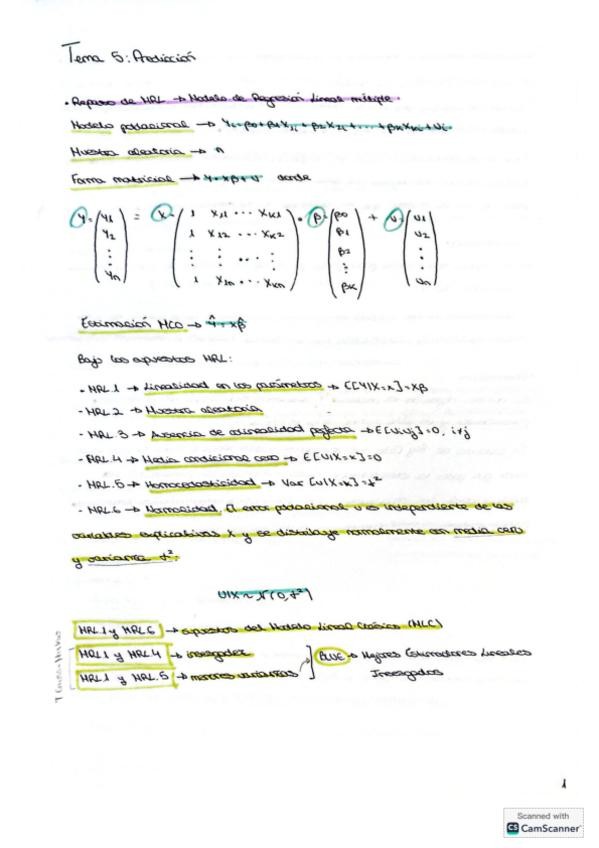 Tema 5: Predicción
• Repaso de MRL → Modelo de Regresión Lineal múltiple.
Modelo poblacional → Yi = β0 + β1X1i + β2X2i + ... + βkXki + Ui
Muestra aleatoria → n
Forma matricial → Y = Xβ + U donde
Y = (Y1 Y2 ⋮ Yn) = X = (1 X11 ... Xk1
1 X12 ... Xk2
⋮ ⋮ ⋮
1 X1n ... Xkn) · β = (β0 β1 β2 ⋮ βk) + U = (U1 U2 ⋮ Un)
Estimación MCO → Ŷ = Xβ̂
Bajo los supuestos MRL:
- MRL.1 → Linealidad en los parámetros → E[Y|X=x]=Xβ
- MRL.2 → Muestra aleatoria
- MRL.3 → Ausencia de colinealidad perfecta → E[UiUj]=0, i≠j
- RRL.4 → Media condicional cero → E[U|X=x]=0
- MRL.5 → Homocedasticidad → Var[U|X=x]=σ²
- MRL.6 → Normalidad. El error poblacional U es independiente de las
variables explicativas X y se distribuye normalmente con media cero
y varianza σ².
U|X ~ N(0,σ²)
MRL.1 y MRL.6 → supuestos del Modelo Lineal Clásico (MLC)
MRL.1 y MRL.4 → insesgadez
MRL.1 y MRL.5 → menores varianzas
BLUE → Mejores Estimadores Lineales
Insesgados
T. Gauss-Markov
1
Scanned with
CS CamScanner